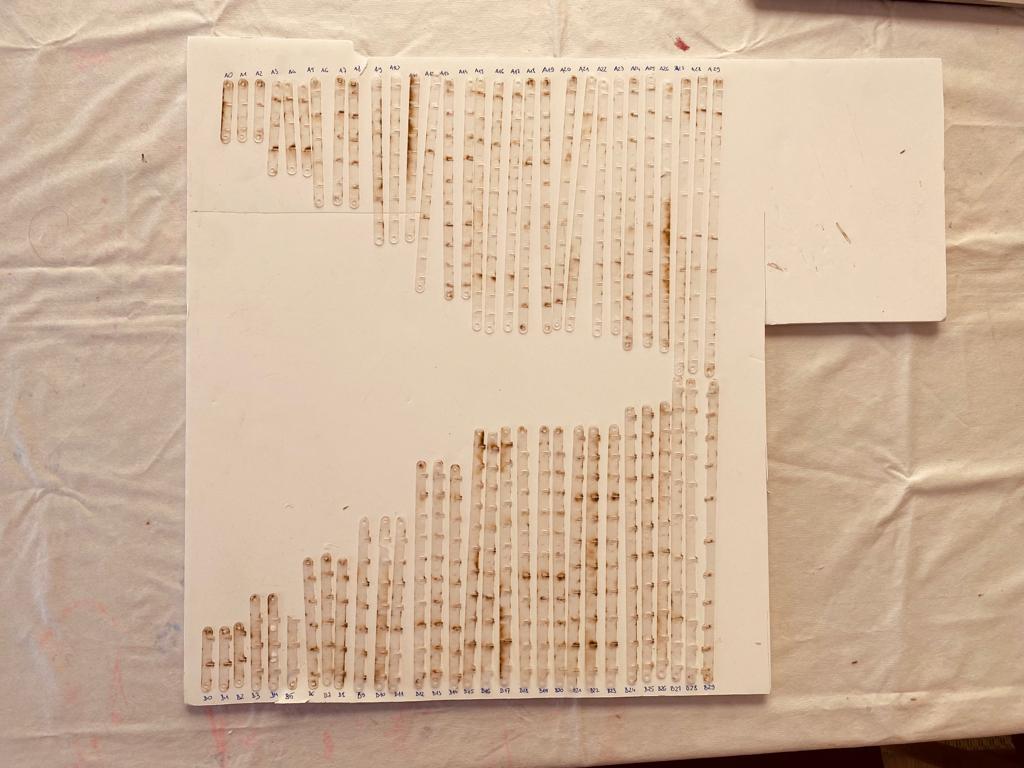 A0 A1 A2 A3 A4 A5 A6 A7 A8 A9 A10 A11 A12 A13 A14 A15 A16 A17 A18 A19 A20 A21 A22 A23 A24 A25 A26 A27 A28 A29
B0 B1 B2 B3 B4 B5 B6 B7 B8 B9 B10 B11 B12 B13 B14 B15 B16 B17 B18 B19 B20 B21 B22 B23 B24 B25 B26 B27 B28 B29